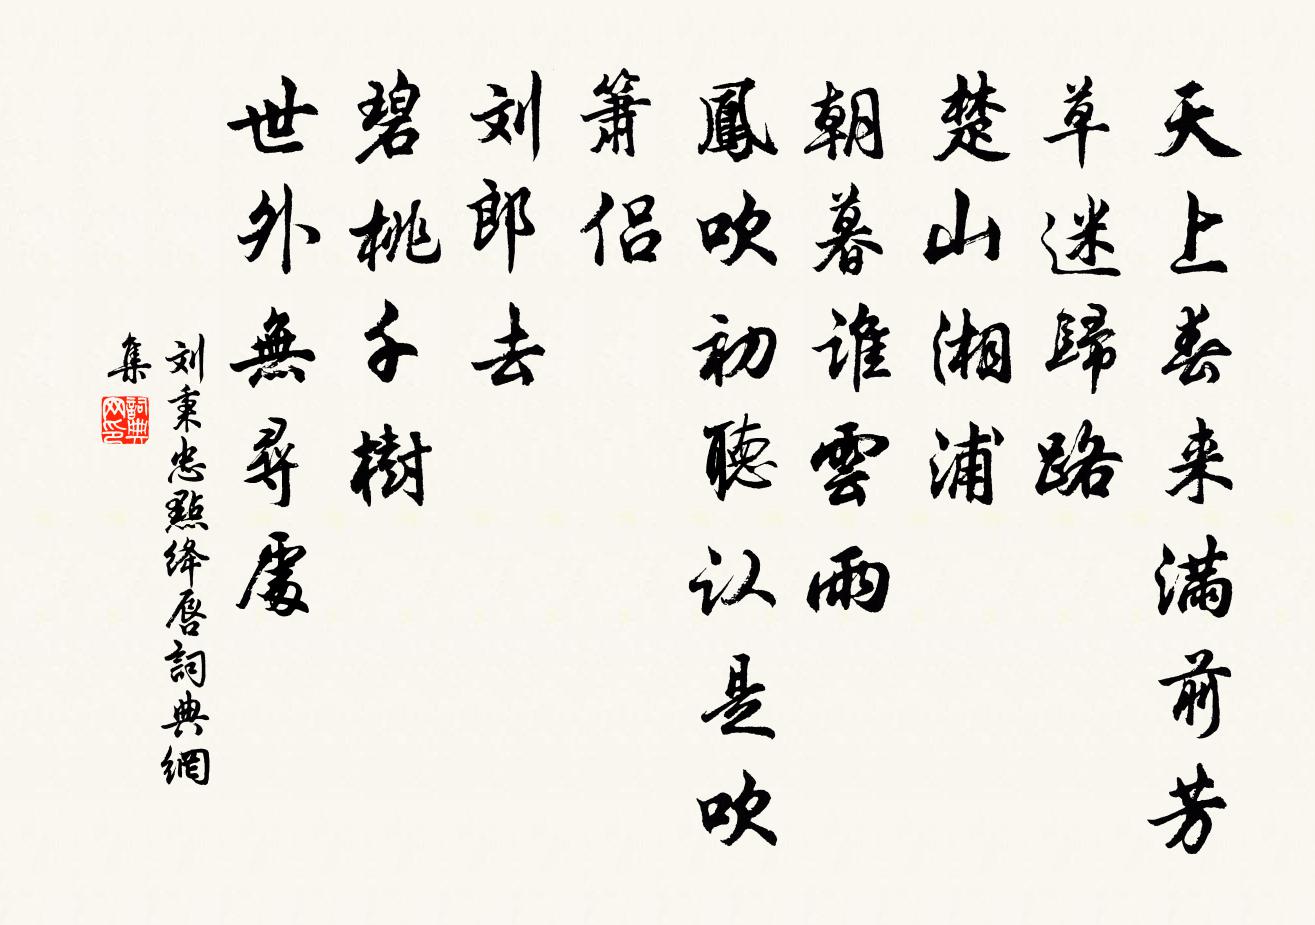 天上春来滿前芳
草迷歸路
楚山湘浦
朝暮誰雲雨
鳳吹初聽认是吹
簫侣
刘郎去
碧桃千樹
世外無尋處
刘秉忠點絳唇詞典網
集
詞典
网印